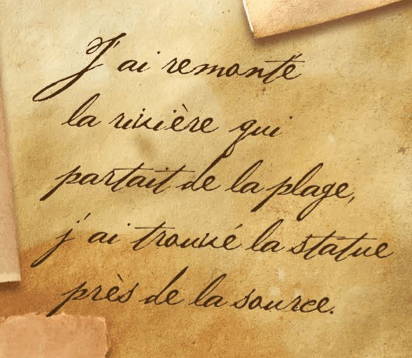 J'ai remonté
la rivière qui
partait de la plage,
j'ai trouvé la statue
près de la source.